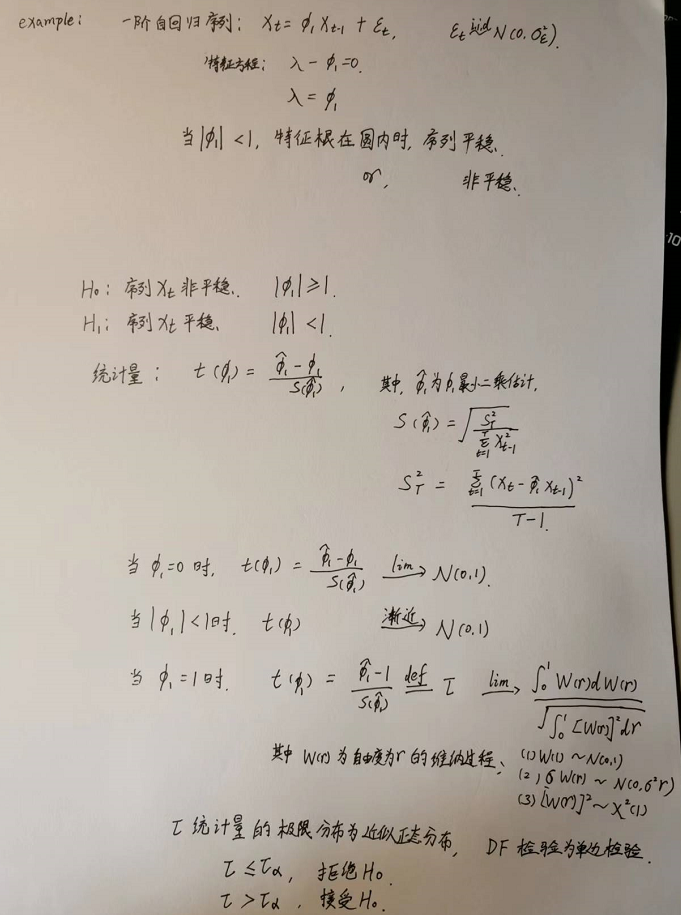 example: 一阶自回归序列: Xt = ϕ₁Xt-1 + εt, εt iid N(0, σε²).
特征方程: λ - ϕ₁ = 0.
λ = ϕ₁
当|ϕ₁| < 1, 特征根在圆内时, 序列平稳.
or, 非平稳.
H₀: 序列Xt非平稳. |ϕ₁| ≥ 1.
H₁: 序列Xt平稳. |ϕ₁| < 1.
统计量: t(ϕ₁) = (ϕ̂₁ - ϕ₁) / S(ϕ̂₁), 其中, ϕ̂₁为ϕ₁最小二乘估计,
S(ϕ̂₁) = √(S_T² / Σ_{t=1}^{T} X²t-1)
S_T² = Σ_{t=1}^{T} (Xt - ϕ̂₁Xt-1)² / (T-1)
当 ϕ₁=0 时, t(ϕ₁) = (ϕ̂₁ - ϕ₁) / S(ϕ̂₁) lim→ N(0,1).
当 |ϕ₁| < 1时. t(ϕ₁) 渐近→ N(0,1)
当 ϕ₁ = 1时. t(ϕ₁) = (ϕ̂₁ - 1) / S(ϕ̂₁) def= τ lim→ ∫₀¹ W(r)dW(r) / √(∫₀¹ [W(r)]²dr)
其中 W(r) 为自由度为r的维纳过程, (1) W(1) ~ N(0,1)
(2) σW(r) ~ N(0, σ²r)
(3) [W(r)]² ~ χ²(1)
τ统计量的极限分布为近似正态分布, DF检验为单边检验.
τ ≤ τα, 拒绝H₀.
τ > τα, 接受H₀.
-10